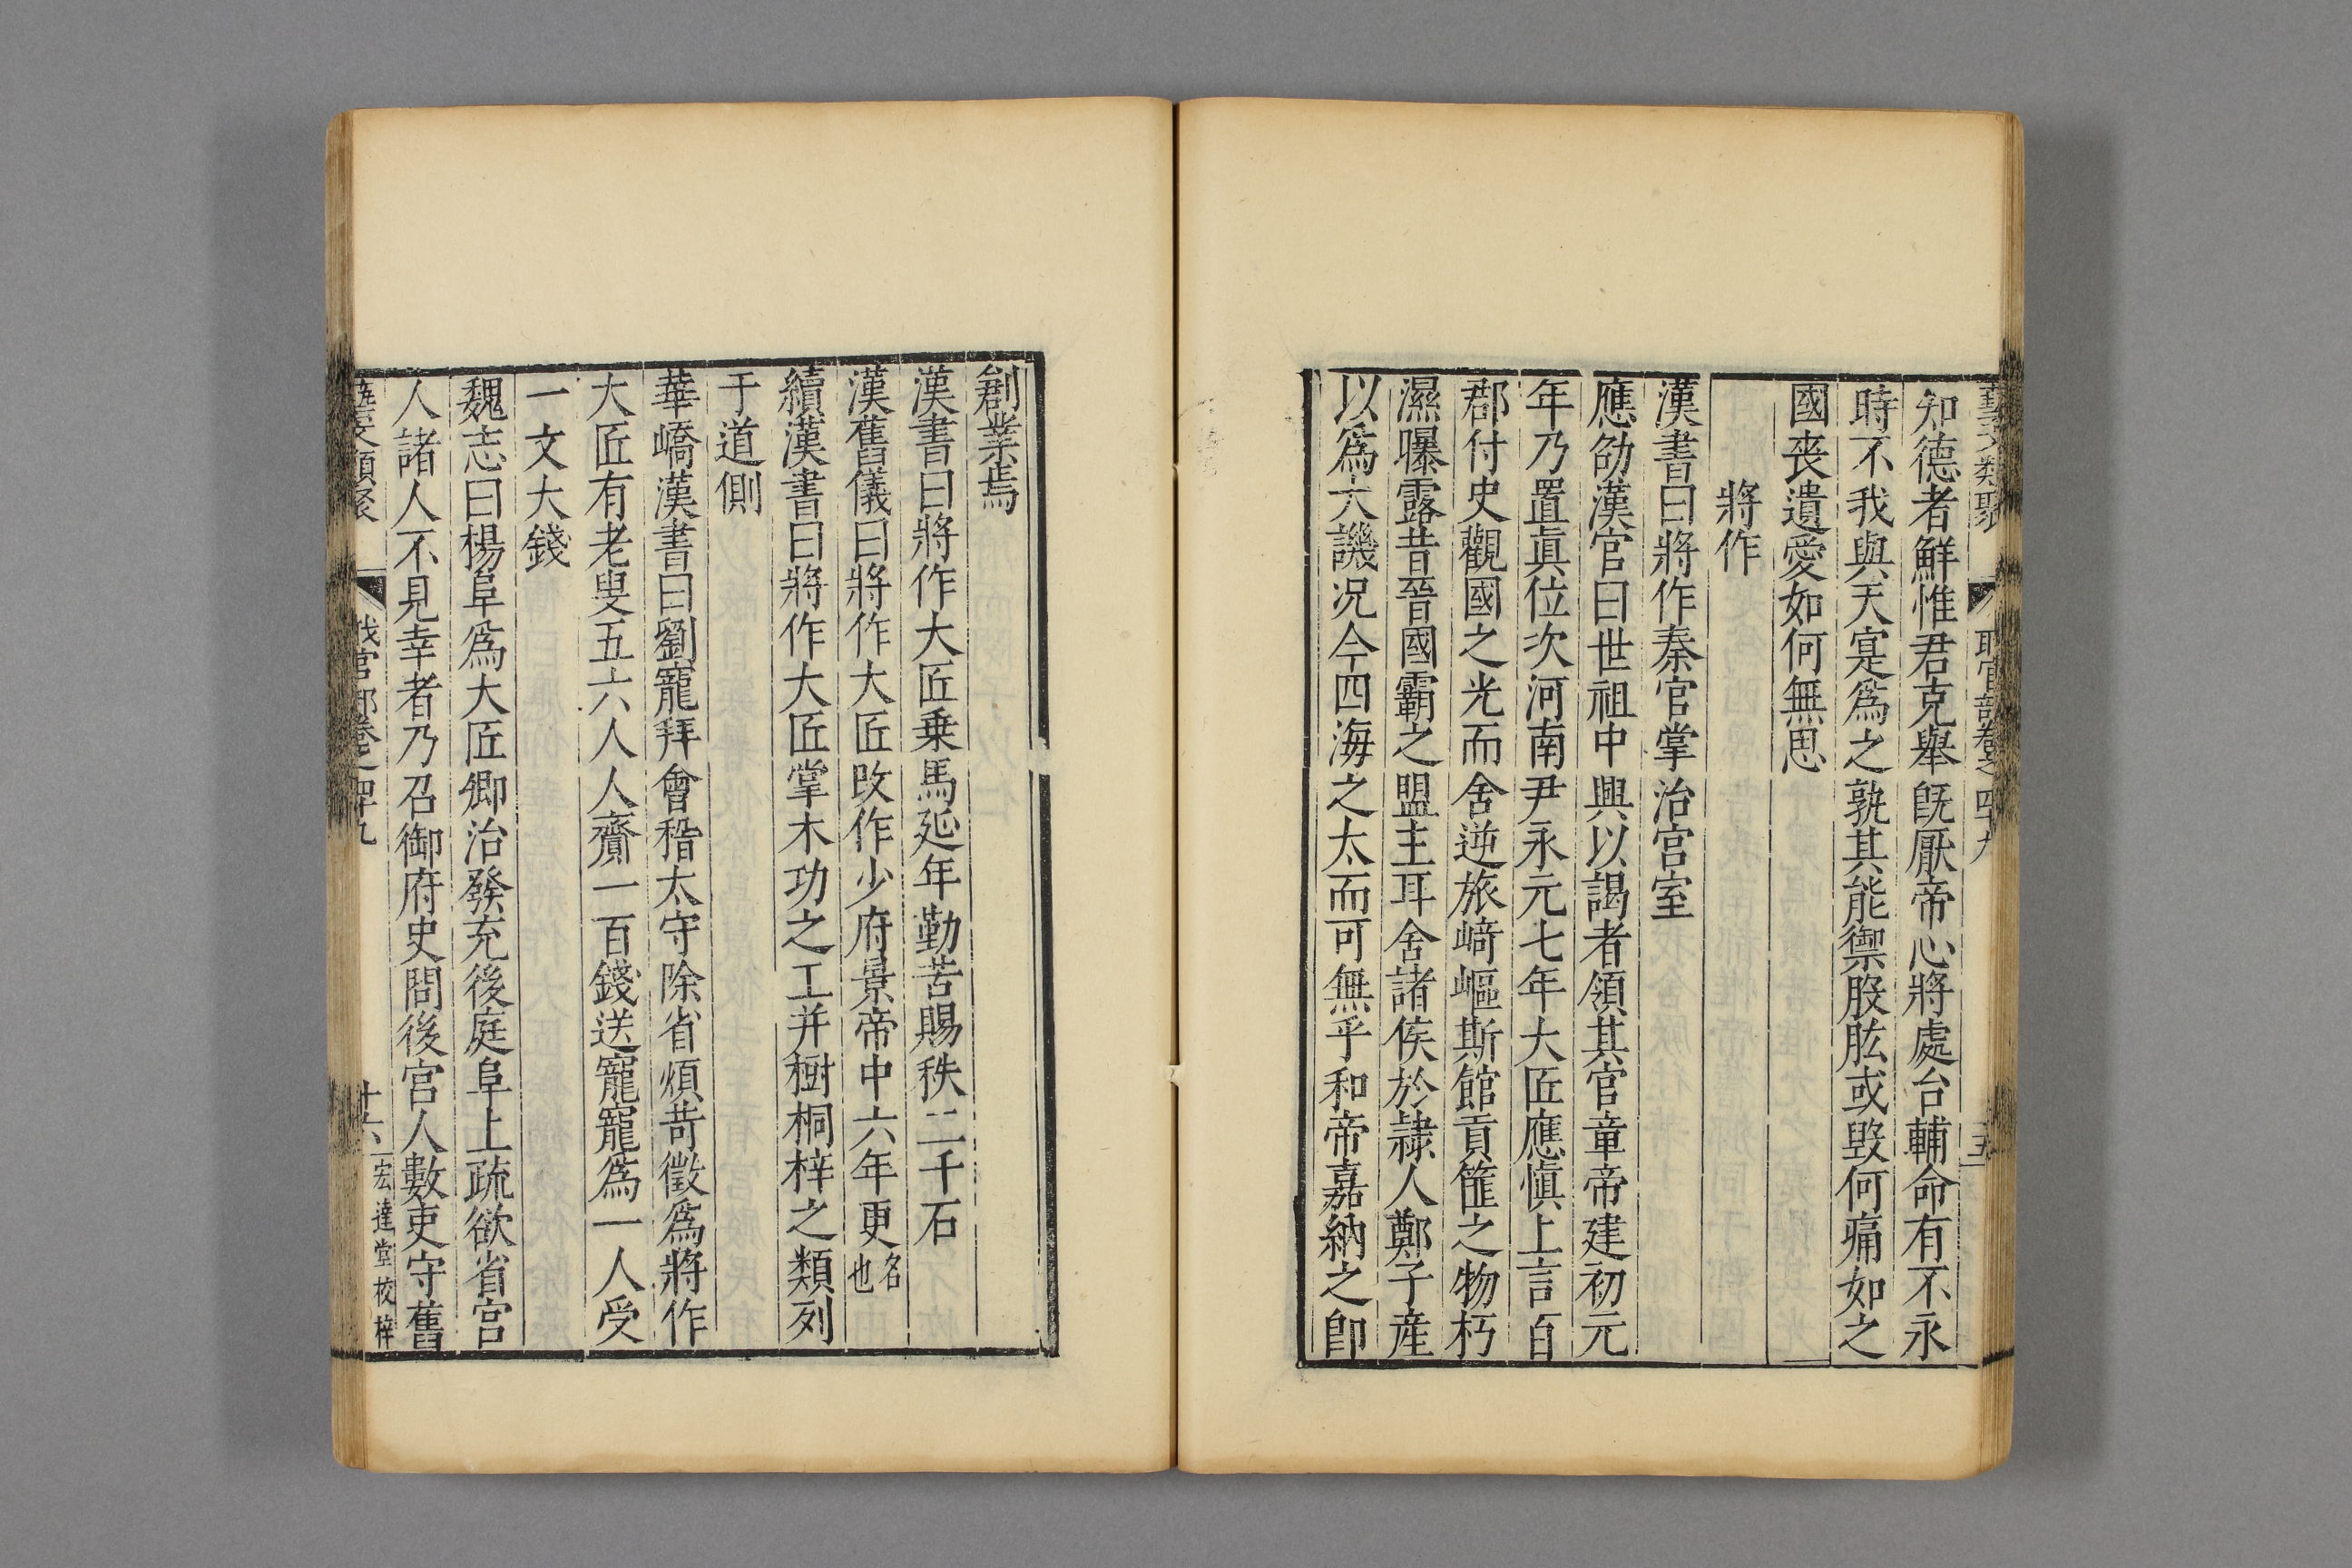 藝文類聚　職官部卷之四十九　十五
知德者鮮惟君克舉旣厭帝心將處台輔命有不永
時不我與天寔爲之孰其能禦股肱或毀何痛如之
國喪遺愛如何無思
將作
漢書曰將作秦官掌治宮室
應劭漢官曰世祖中興以謁者領其官章帝建初元
年乃置眞位次河南尹永元七年大匠應愼上言百
郡付史觀國之光而舍逆旅崎嶇斯館貢篚之物朽
濕曝露昔晉國霸之盟主耳舍諸侯於隸人鄭子產
以爲大譏况今四海之太而可無乎和帝嘉納之卽
創業焉
漢書曰將作大匠乗馬延年勤苦賜秩二千石
漢舊儀曰將作大匠改作少府景帝中六年更名也
續漢書曰將作大匠掌木功之工并樹桐梓之類列
于道側
華嶠漢書曰劉寵拜會稽太守除省煩苛徵爲將作
大匠有老叟五六人人齎一百錢送寵寵爲一人受
一文大錢
魏志曰楊阜爲大匠卿治發充後庭阜上疏欲省宮
人諸人不見幸者乃召御府史問後宮人數吏守舊
藝文類聚　職官部卷之四十九　十六　宏達堂校梓